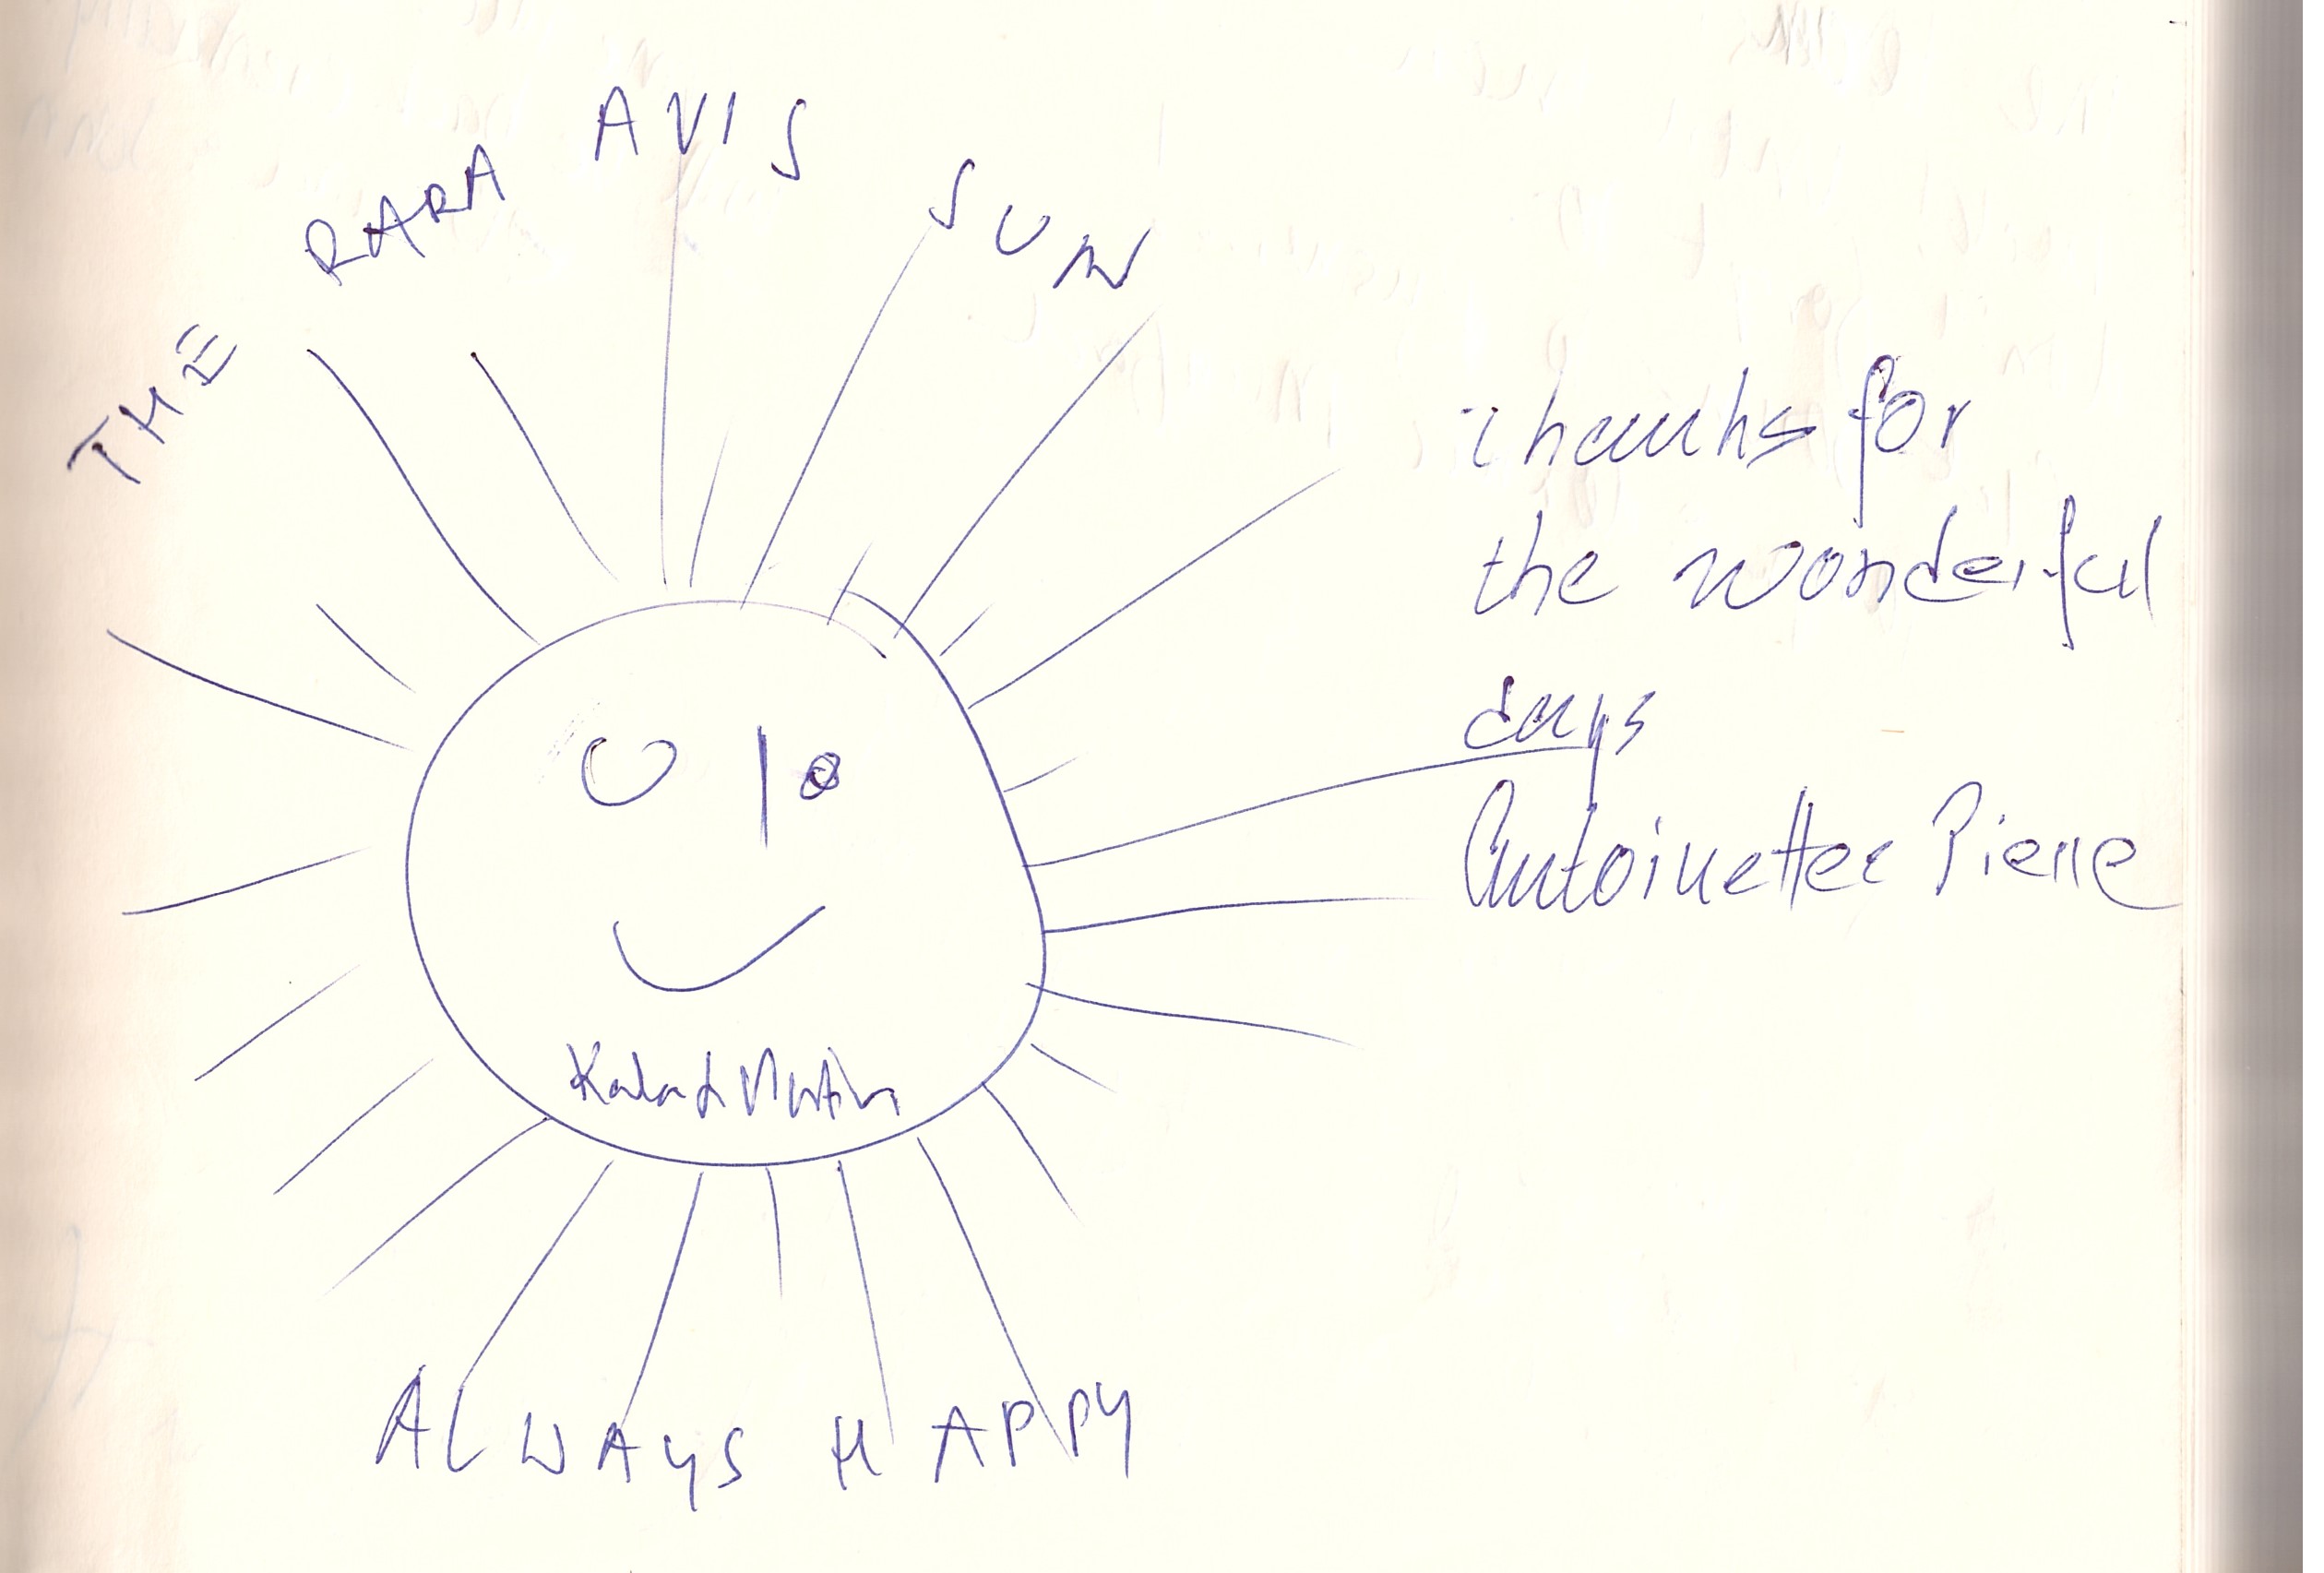 THE RARA AVIS SUN
Thanks for
the wonderful
days
Antoinette e Pierre
Martin
ALWAYS HAPPY